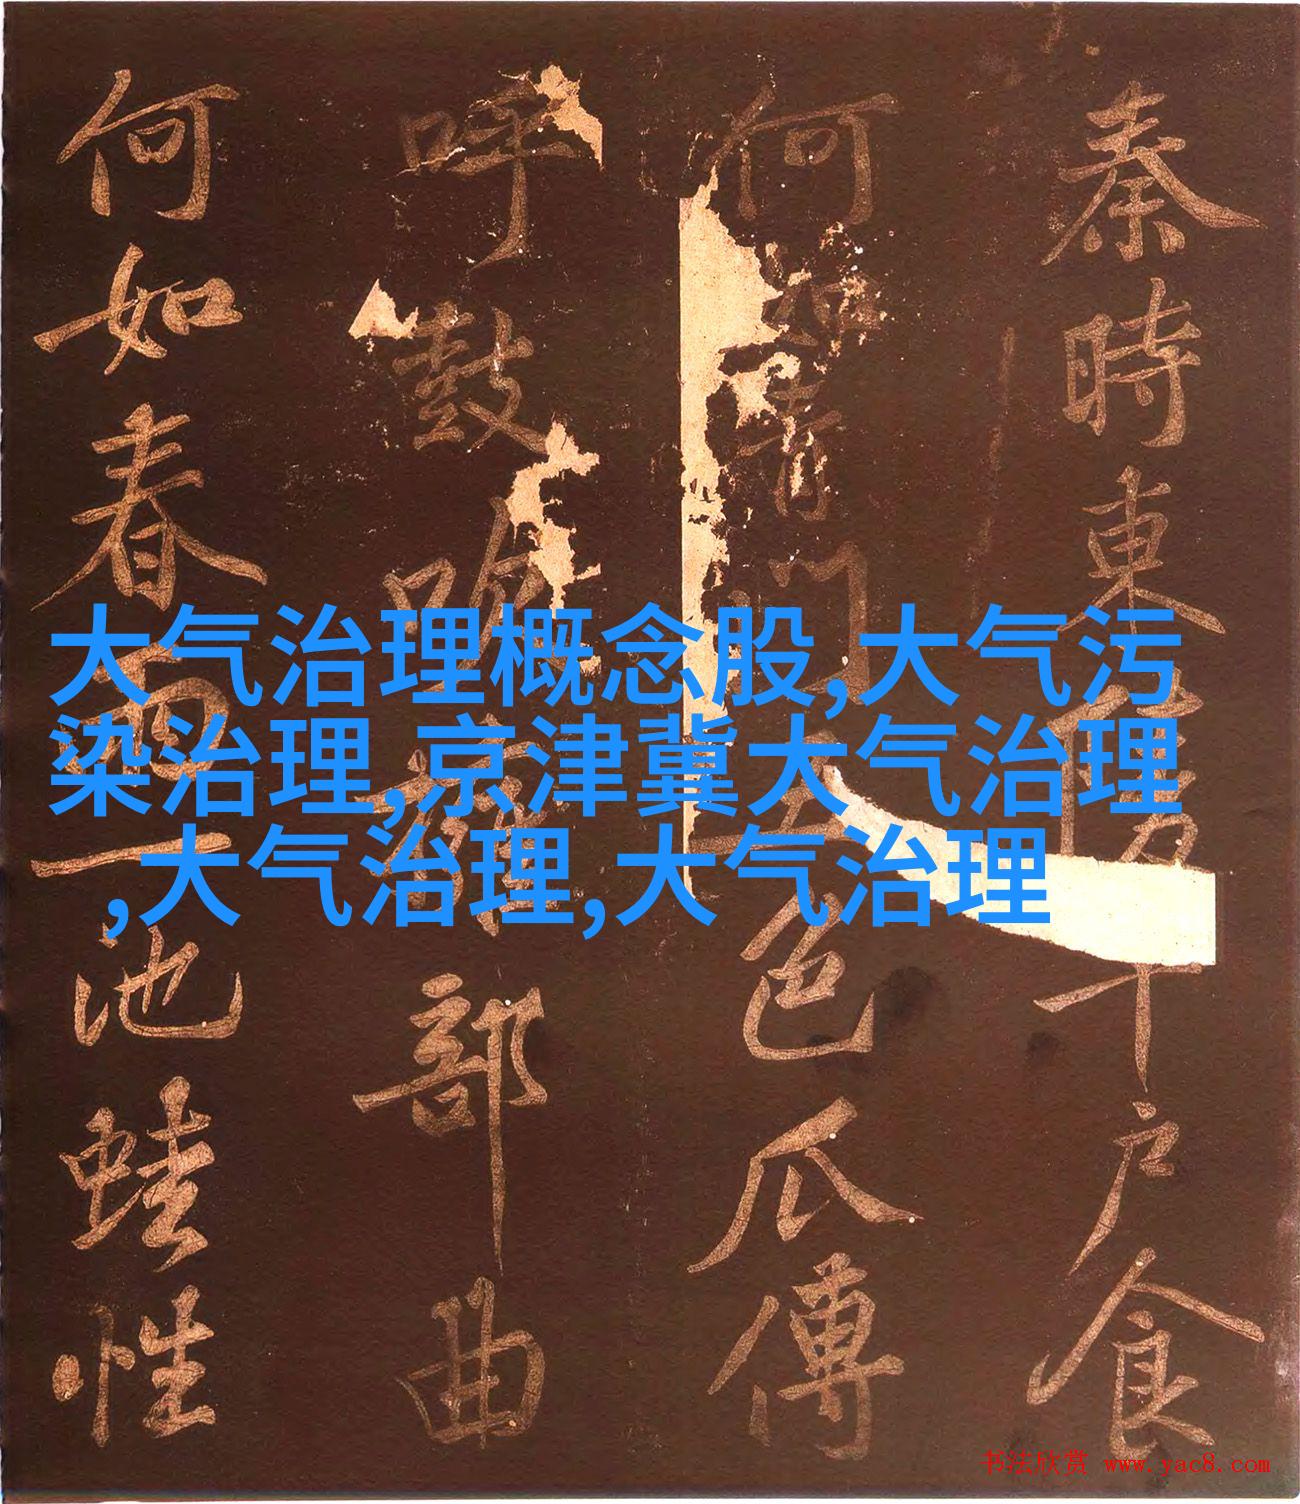 秦時東陵千户食
何如青門五色瓜傳
呼鼓吹 部曲
何如春雨一池蛙性
大气治理概念股,大气污
染治理,京津冀大气治理
,大气治理,大气治理
书法欣赏 www.yac8.com